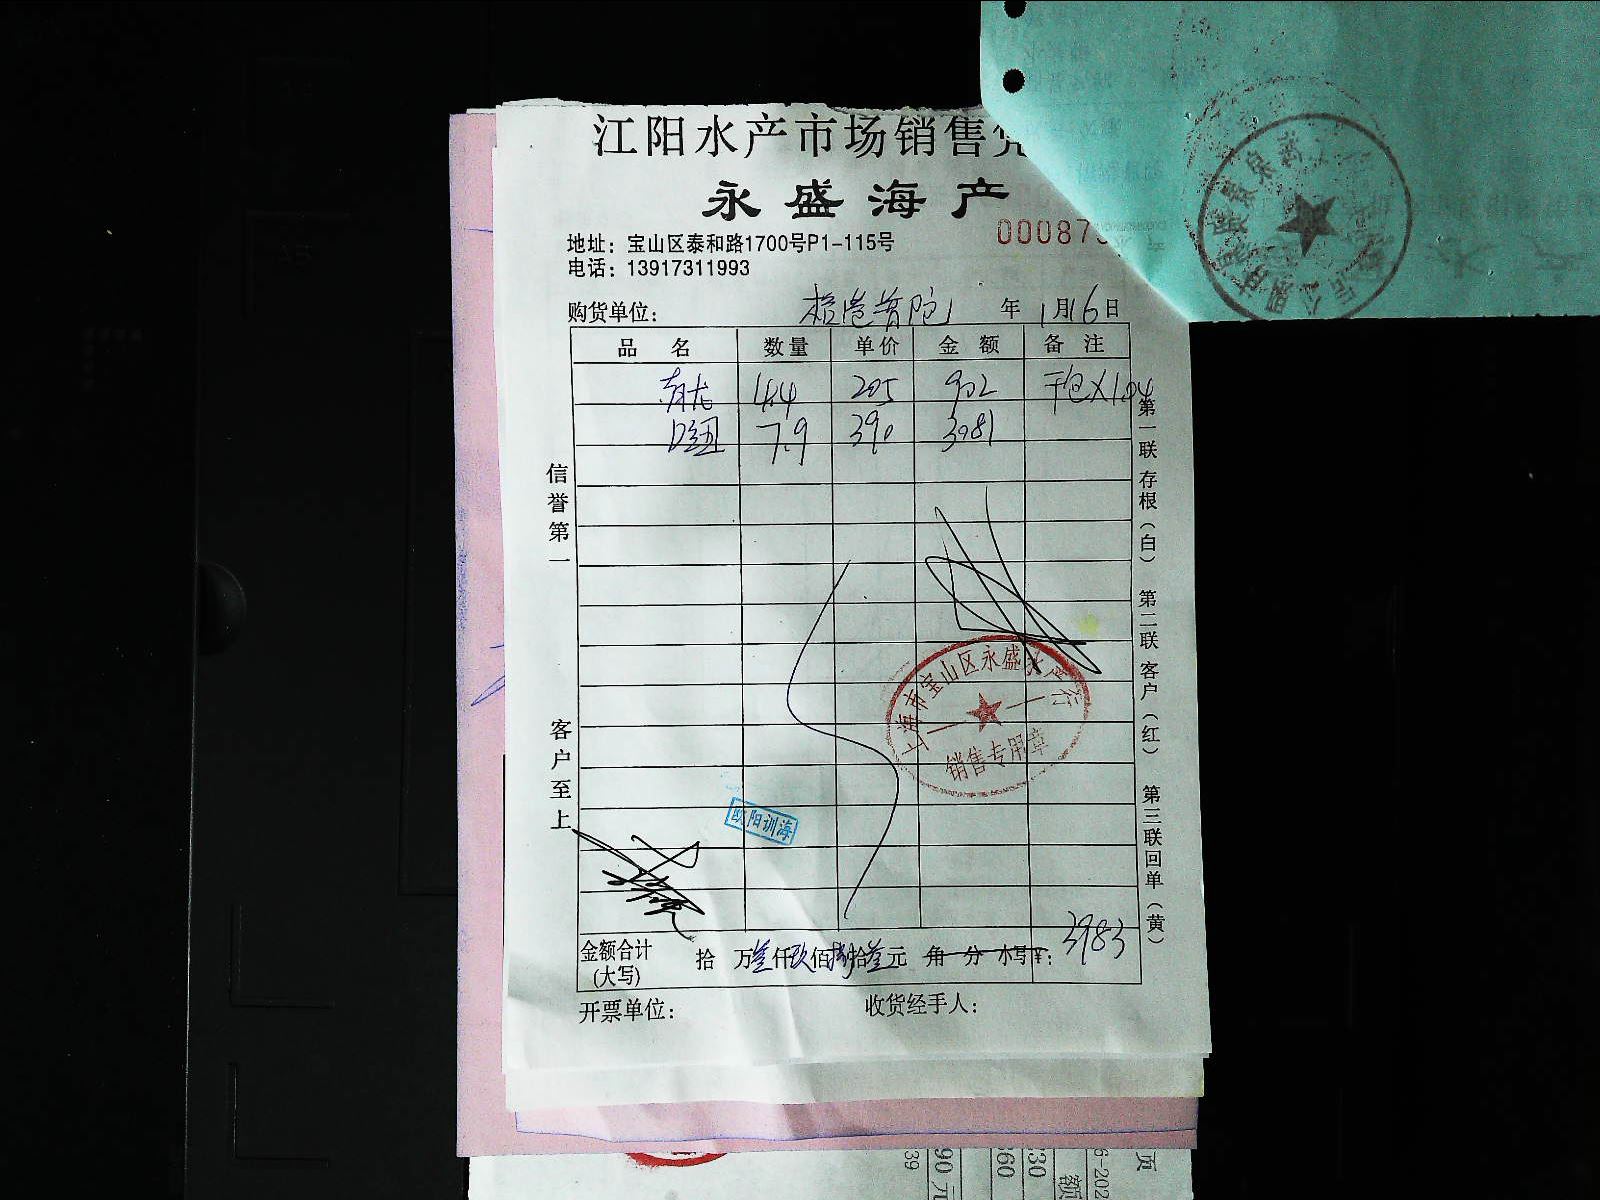 江阳水产市场销售
永盛海产
地址：宝山区泰和路1700号P1-115号
00087
电话：13917311993
购货单位： 年 1月16日
品名 数量 单价 金额 备注
青龙 4.4 205 902 干包X1.04
7.9 390 3081
信誉第一
客户至上
第一联 存根（白） 第二联 客户（红） 第三联 回单（黄）
上海市宝山区永盛水产行
销售专用章
欧阳训海
金额合计(大写) 拾 万叁仟玖佰捌拾叁元 角 分 小写¥：3983
开票单位： 收货经手人：